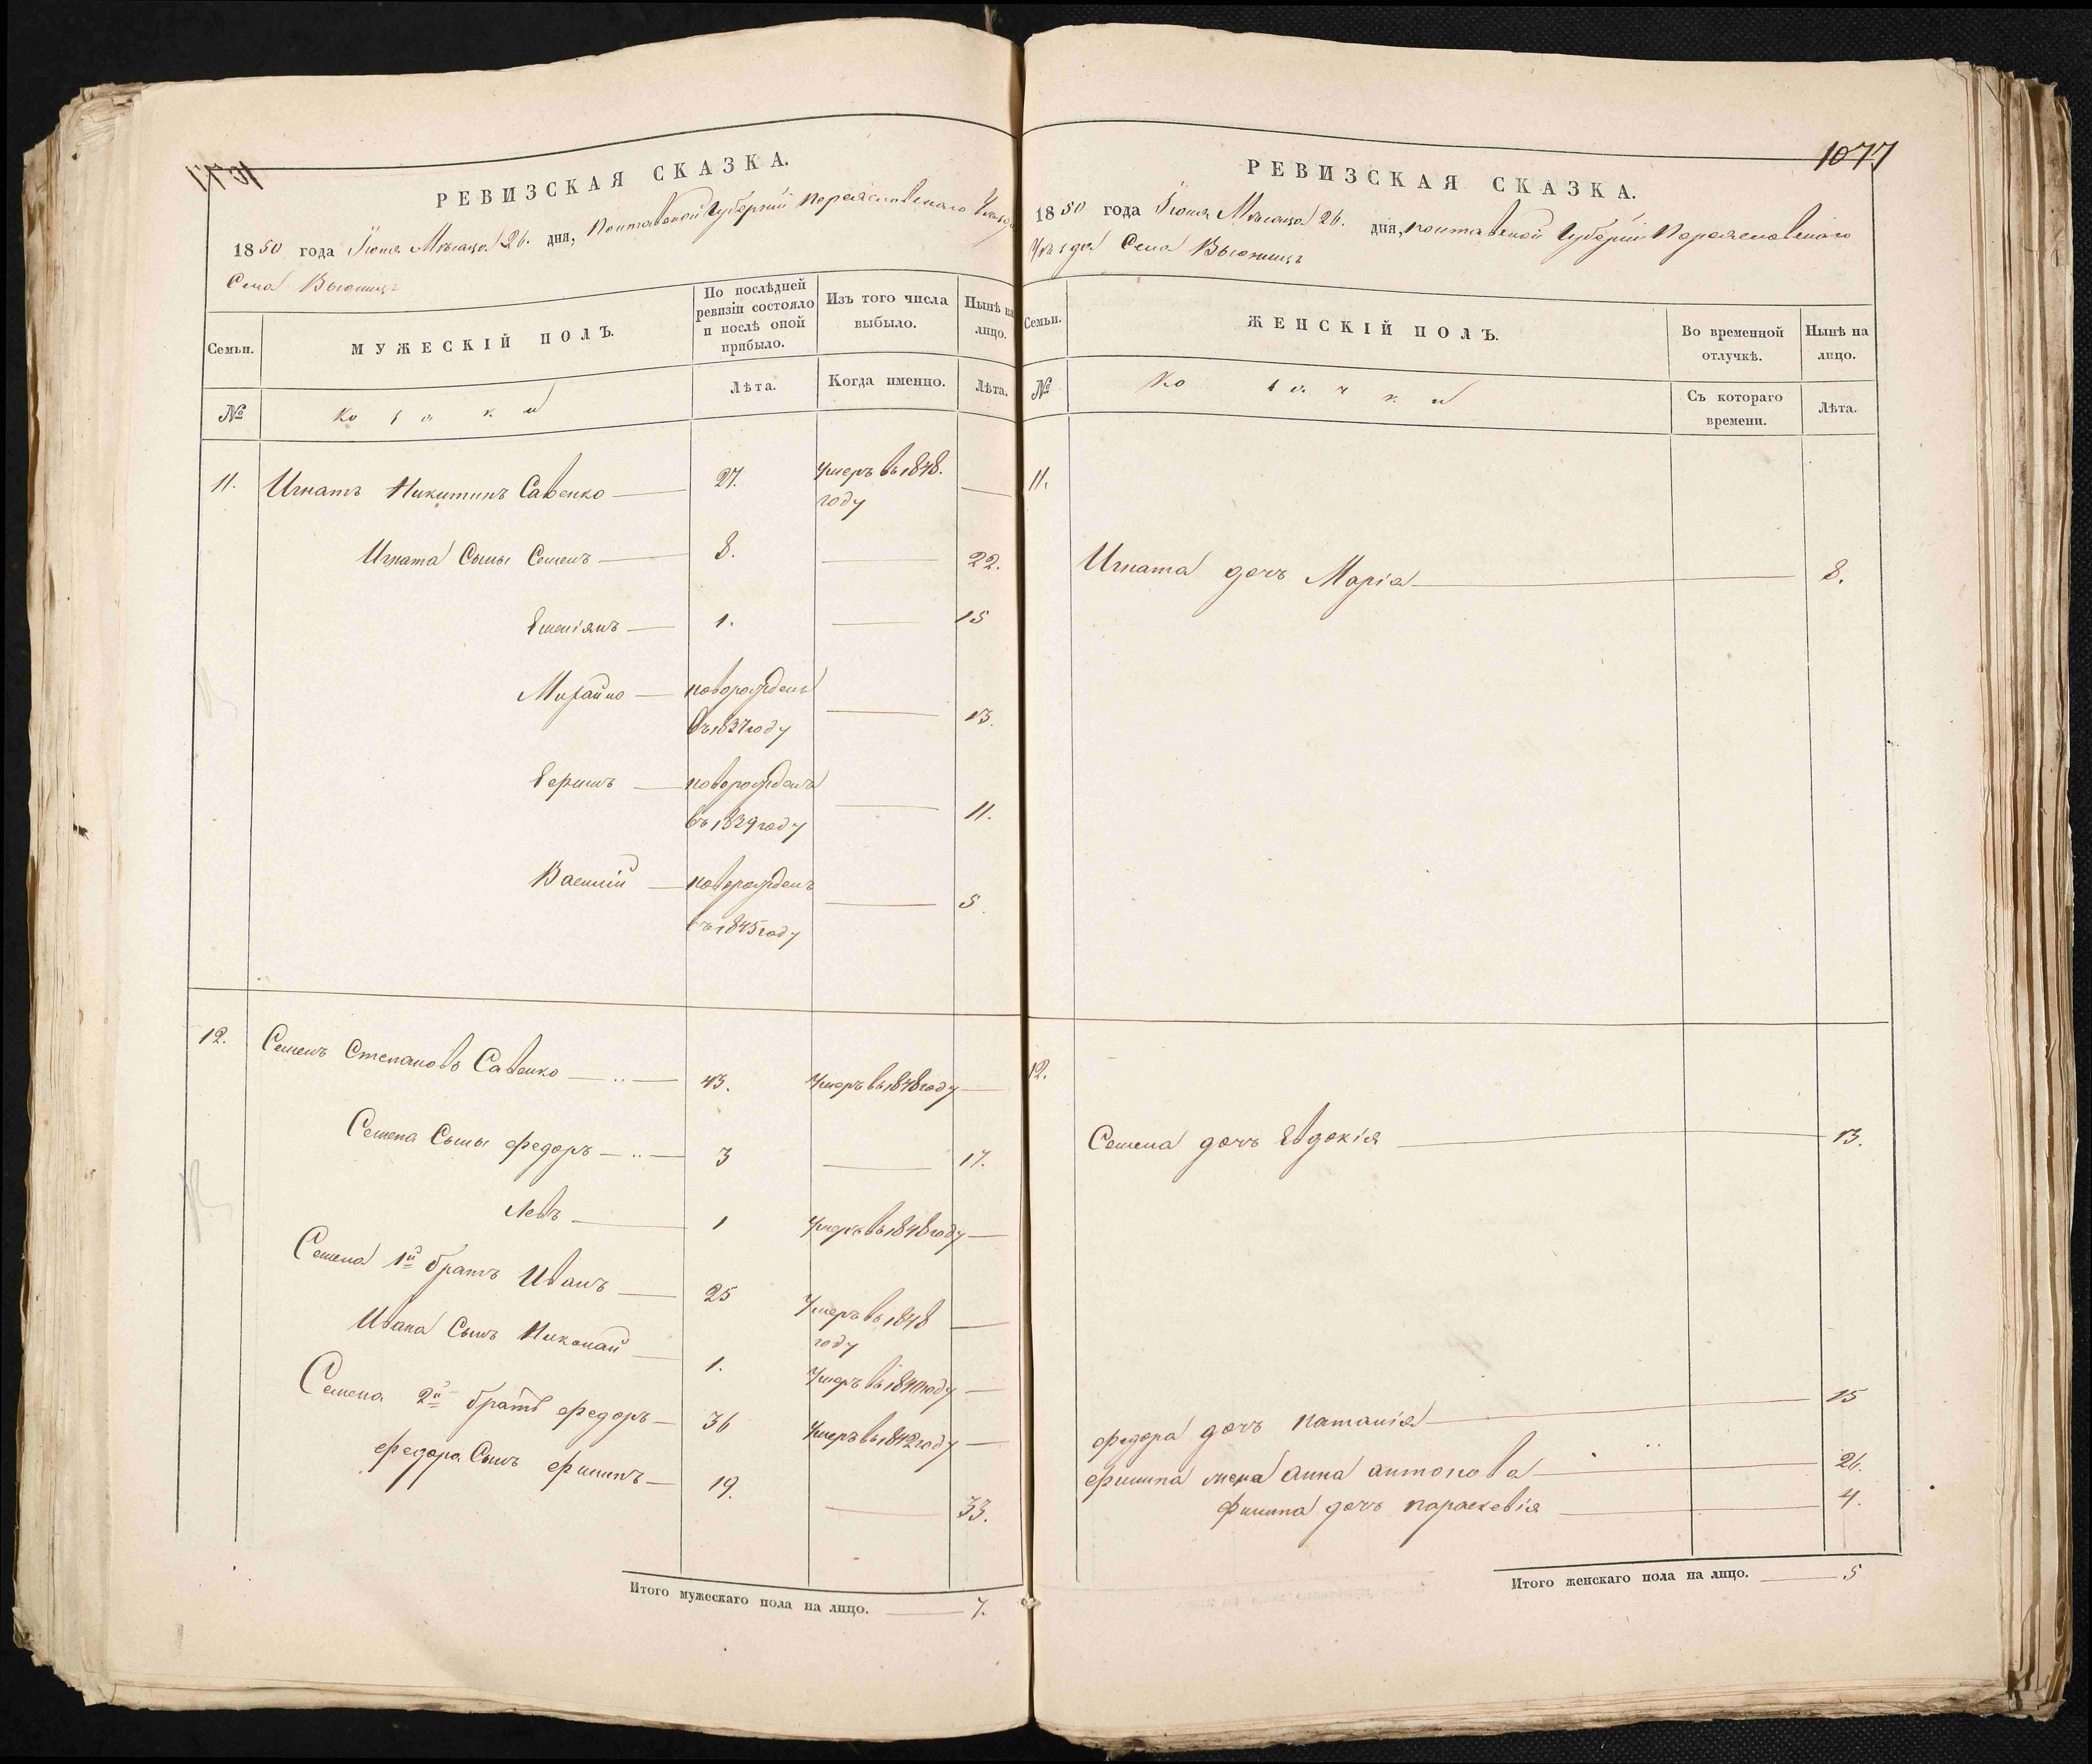 РЕВИЗСКАЯ СКАЗКА.
1850 года Іюня Мѣсяца 26. дня, Полтавской Губерніи Переясловскаго Уѣзда
Села Вьюнищъ
Семьи.
МУЖЕСКІЙ ПОЛЪ.
По послѣдней ревизіи состояло и послѣ оной прибыло.
Изъ того числа выбыло.
Нынѣ на лицо.
№
Козаки
Лѣта.
Когда именно.
Лѣта.
11. Игнатъ Никитинъ Савенко 27. Умеръ въ 1848.
году
Игната Сыны Семенъ 8. 22.
Емеліянъ 1. 15
Михайло новорожденъ
въ 1837 году 13.
Ефимъ новорожденъ
въ 1839 году 11.
Василій новорожденъ
въ 1845 году 5
12. Семенъ Степановъ Савенко 43. Умеръ въ 1848 году
Семена Сыны Федоръ 3 17.
Левъ 1 Умеръ въ 1848 году
Семена 1й братъ Иванъ 25 Умеръ въ 1848
году
Ивана Сынъ Николай 1. Умеръ въ 1840 году
Семена 2й братъ Федоръ 36 Умеръ въ 1842 году
Федора Сынъ Филипъ 19. 33.
Итого мужескаго пола на лицо. 7.
1077
РЕВИЗСКАЯ СКАЗКА.
1850 года Іюня Мѣсяца 26. дня, Полтавской Губерніи Переясловскаго
Уѣзда Села Вьюнищъ
Семьи.
ЖЕНСКІЙ ПОЛЪ.
Во временной отлучкѣ.
Нынѣ на лицо.
№
Козачки
Съ котораго времени.
Лѣта.
11.
Игната дочь Марія 8.
12.
Семена дочь Евдокія 13.
Федора дочь Наталія 15
Филипа жена Анна Антонова 26.
Филипа дочь Параскевія 4.
Итого женскаго пола на лицо. 5